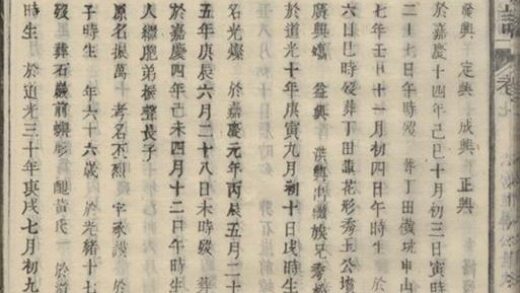 譜 卷七
定興 成興 正興
於嘉慶十四年己巳十月初三日寅時
二十七日午時歿 葬丁田坑申山
七年壬十一月初四日午時生 於
六日巳時歿葬丁田花形秀玉公墳
廣興 益興 洪興出繼族兄秀
於道光十年庚寅九月初十日戌時生
名光燦 於嘉慶元年丙辰五月二十
五年庚辰六月二十八日未時歿 葬
於嘉慶四年己未四月十二日午時生
人繼胞弟振聲長子
原名振萬十 考名丕烈 字承
子時生 年六十六歲 於光緒十七
葬石巖前螺形 配氏 於道
時生 於道光三十年庚戌七月初九